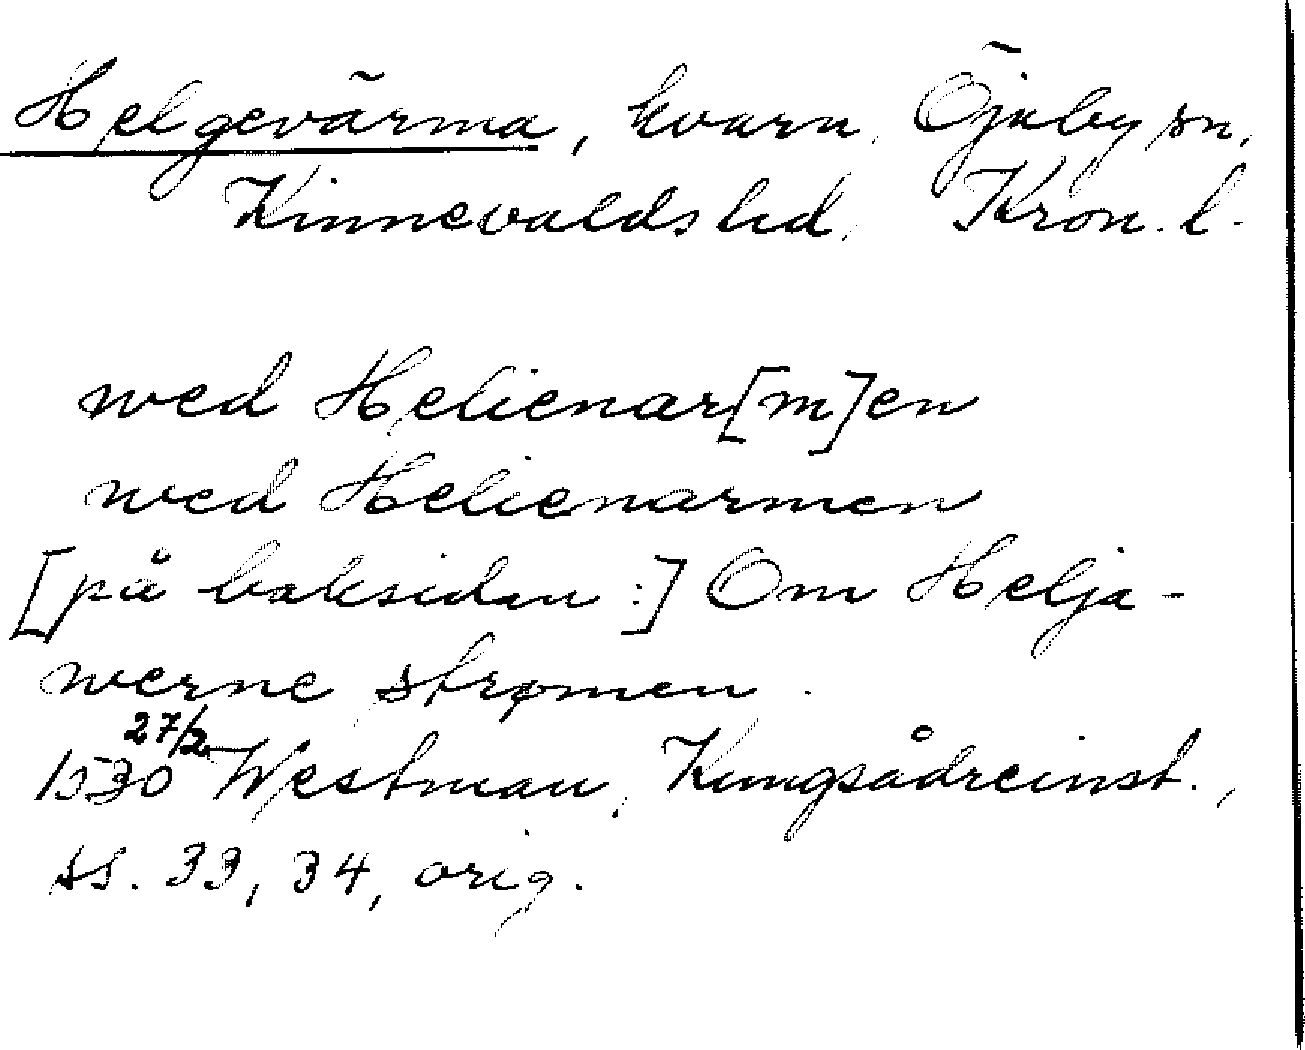 Helgevärma, kvarn, Öjaby sn,
Kinnevalds hd, Kron. l.
wed Helienar[m]en
wed Helienarmen
[på baksidan:] Om Helja-
werne strømen.
27/2
1530 Westman, Kungsådreinst.,
ss. 33, 34, orig.